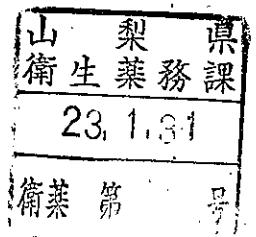 山梨県
衛生薬務課
23.1.31
衛薬 第 号